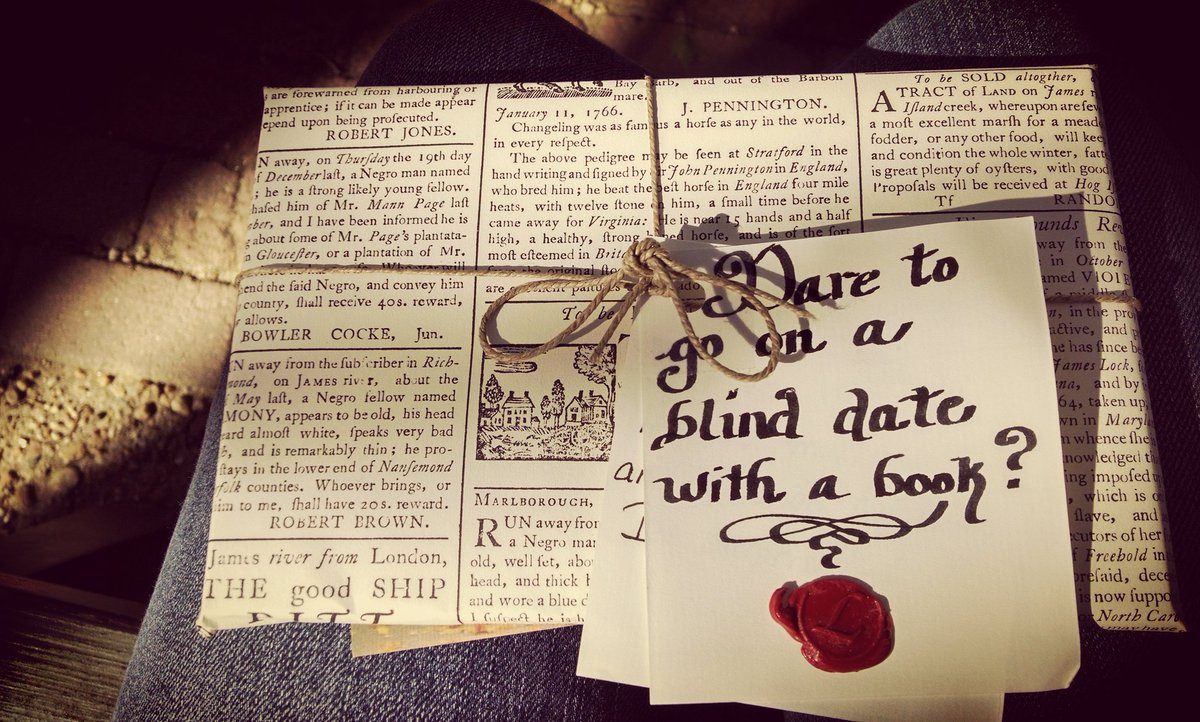 s are forewarned from harbouring or
apprentice; if it can be made appear
epend upon being proſecuted.
ROBERT JONES.
N away, on Thurſday the 19th day
f December laſt, a Negro man named
; he is a ſtrong likely young fellow.
haſed him of Mr. Mann Page laſt
ber, and I have been informed he is
g about ſome of Mr. Page's plantata-
n Glouceſter, or a plantation of Mr.
Whoever will
end the ſaid Negro, and convey him
county, ſhall receive 40s. reward,
allows.
BOWLER COCKE, Jun.
N away from the ſubſcriber in Rich-
mond, on JAMES river, about the
f May laſt, a Negro fellow named
MONY, appears to be old, his head
ard almoſt white, ſpeaks very bad
h, and is remarkably thin; he pro-
ſtays in the lower end of Nanſemond
folk counties. Whoever brings, or
im to me, ſhall have 20s. reward.
ROBERT BROWN.
James river from London,
THE good SHIP
PITT
Bay arb, and out of the Barbon
mare.
J. PENNINGTON.
January 11, 1766.
Changeling was as famous a horſe as any in the world,
in every reſpect.
The above pedigree may be ſeen at Stratford in the
hand writing and ſigned by Sir John Pennington in England,
who bred him; he beat the beſt horſe in England four mile
heats, with twelve ſtone on him, a ſmall time before he
came away for Virginia: He is near 15 hands and a half
high, a healthy, ſtrong boned horſe, and is of the ſort
moſt eſteemed in Brit
from the original ſto
are
To be
MARLBOROUGH,
RUN away fro
a Negro ma
old, well ſet, abo
head, and thick
and wore a blue c
I ſuſpect he is h
To be SOLD altogther,
A TRACT of LAND on James r
Iſland creek, whereupon are few
a moſt excellent marſh for a mead
fodder, or any other food, will kee
and condition the whole winter, fatt
is great plenty of oyſters, with good
Propoſals will be received at Hog I
Tf RANDO
ounds Re
way from the
in October
amed VIOL
a middle
n, in the pro
active, and p
he has ſince b
James Lock, ſ
na, and by
64, taken up,
wn in Maryl
m whence ſhe
nowledged th
ing impoſed
, which is o
ſlave, and
ecutors of her
f Freehold in
oreſaid, dece
is now ſuppo
North Car
may have
Dare to
go on a
blind date
with a book?